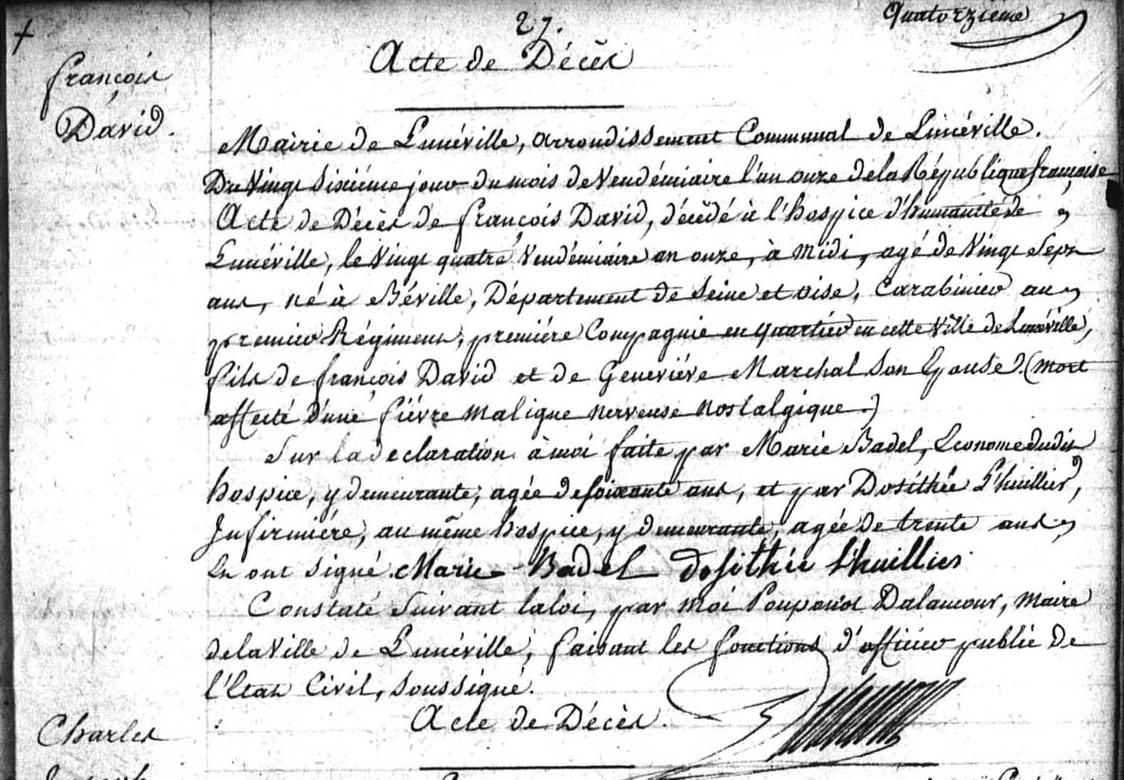 27.
Quatorzieme
Acte de Décès
françois
David.
Mairie de Lunéville, arrondissement Communal de Lunéville.
Du Vingt Sixiéme jour du mois de Vendémiaire l'an onze de la République française
Acte de Décès de françois David, décédé à l'hospice d'humanité de
Lunéville, le Vingt quatre Vendémiaire an onze, à midi, agé de Vingt Sept
ans, né à Béville, Département de Seine et oise, Carabinier au
premier Régiment, premiére Compagnie en quartier en cette Ville de Lunéville,
fils de françois David et de Geneviéve Marchal Son Epouse. (mort
affecté d'une fiévre maligne nerveuse nostalgique.)
Sur la declaration à moi faite par Marie Badel, Econome dudit
hospice, y demeurante, agée de soixante ans, et par Dosithée L'huillier,
Infirmiére, au même hospice, y demeurante, agée de trente ans
En ont signé. Marie Badel dosithée l'huillier
Constaté Suivant la loi, par moi Dalancour, Maire
de la Ville de Lunéville, faisant les fonctions d'officier public de
l'Etat Civil, soussigné.
Acte de Décès.
Charles
Joseph